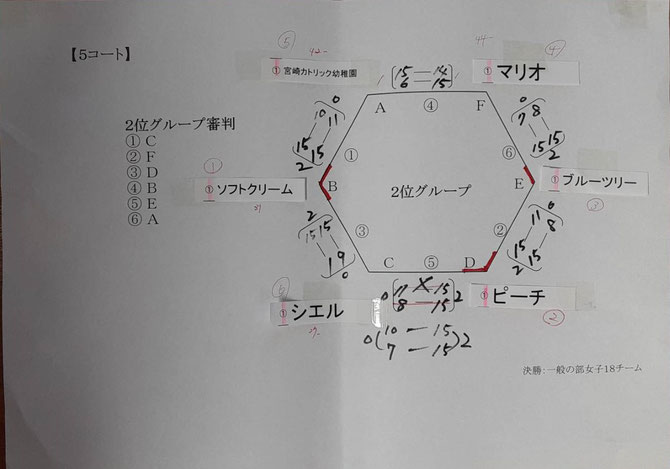 【5コート】
⑤ 42-
① 宮崎カトリック幼稚園
44- ④
① マリオ
15 — 14
6 — 15
A ④ F
2位グループ審判
① C
② F
③ D
④ B
⑤ E
⑥ A
0
10 11
15 15
2
①
0
7 8
15 15
2
⑥
①
① ソフトクリーム
37
B
2位グループ
E
① ブルーツリー
③
2
15 15
9
0
③
0
11 8
15 15
2
②
C ⑤ D
⑥
① シエル
39-
① ピーチ
②
0 11 X 15 2
8 — 15
0 10 — 15 2
7 — 15
決勝:一般の部女子18チーム